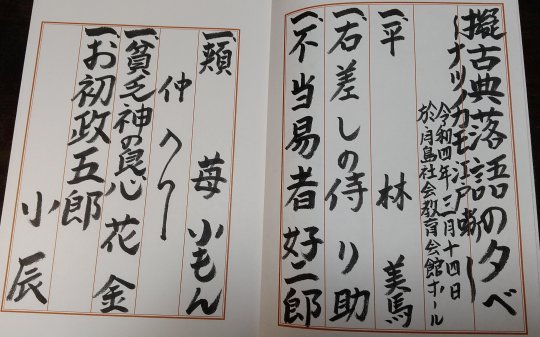 擬古典落語の夕べ
〜ナツイカモ江戸噺〜
令和四年三月十四日
於・月島社会教育会館ホール
一、平林 美馬
一、右差しの侍 り助
一、不当易者 好二郎
一、頬苺 小もん
仲入り
一、貧乏神の良心 花金
一、お初政五郎 小辰